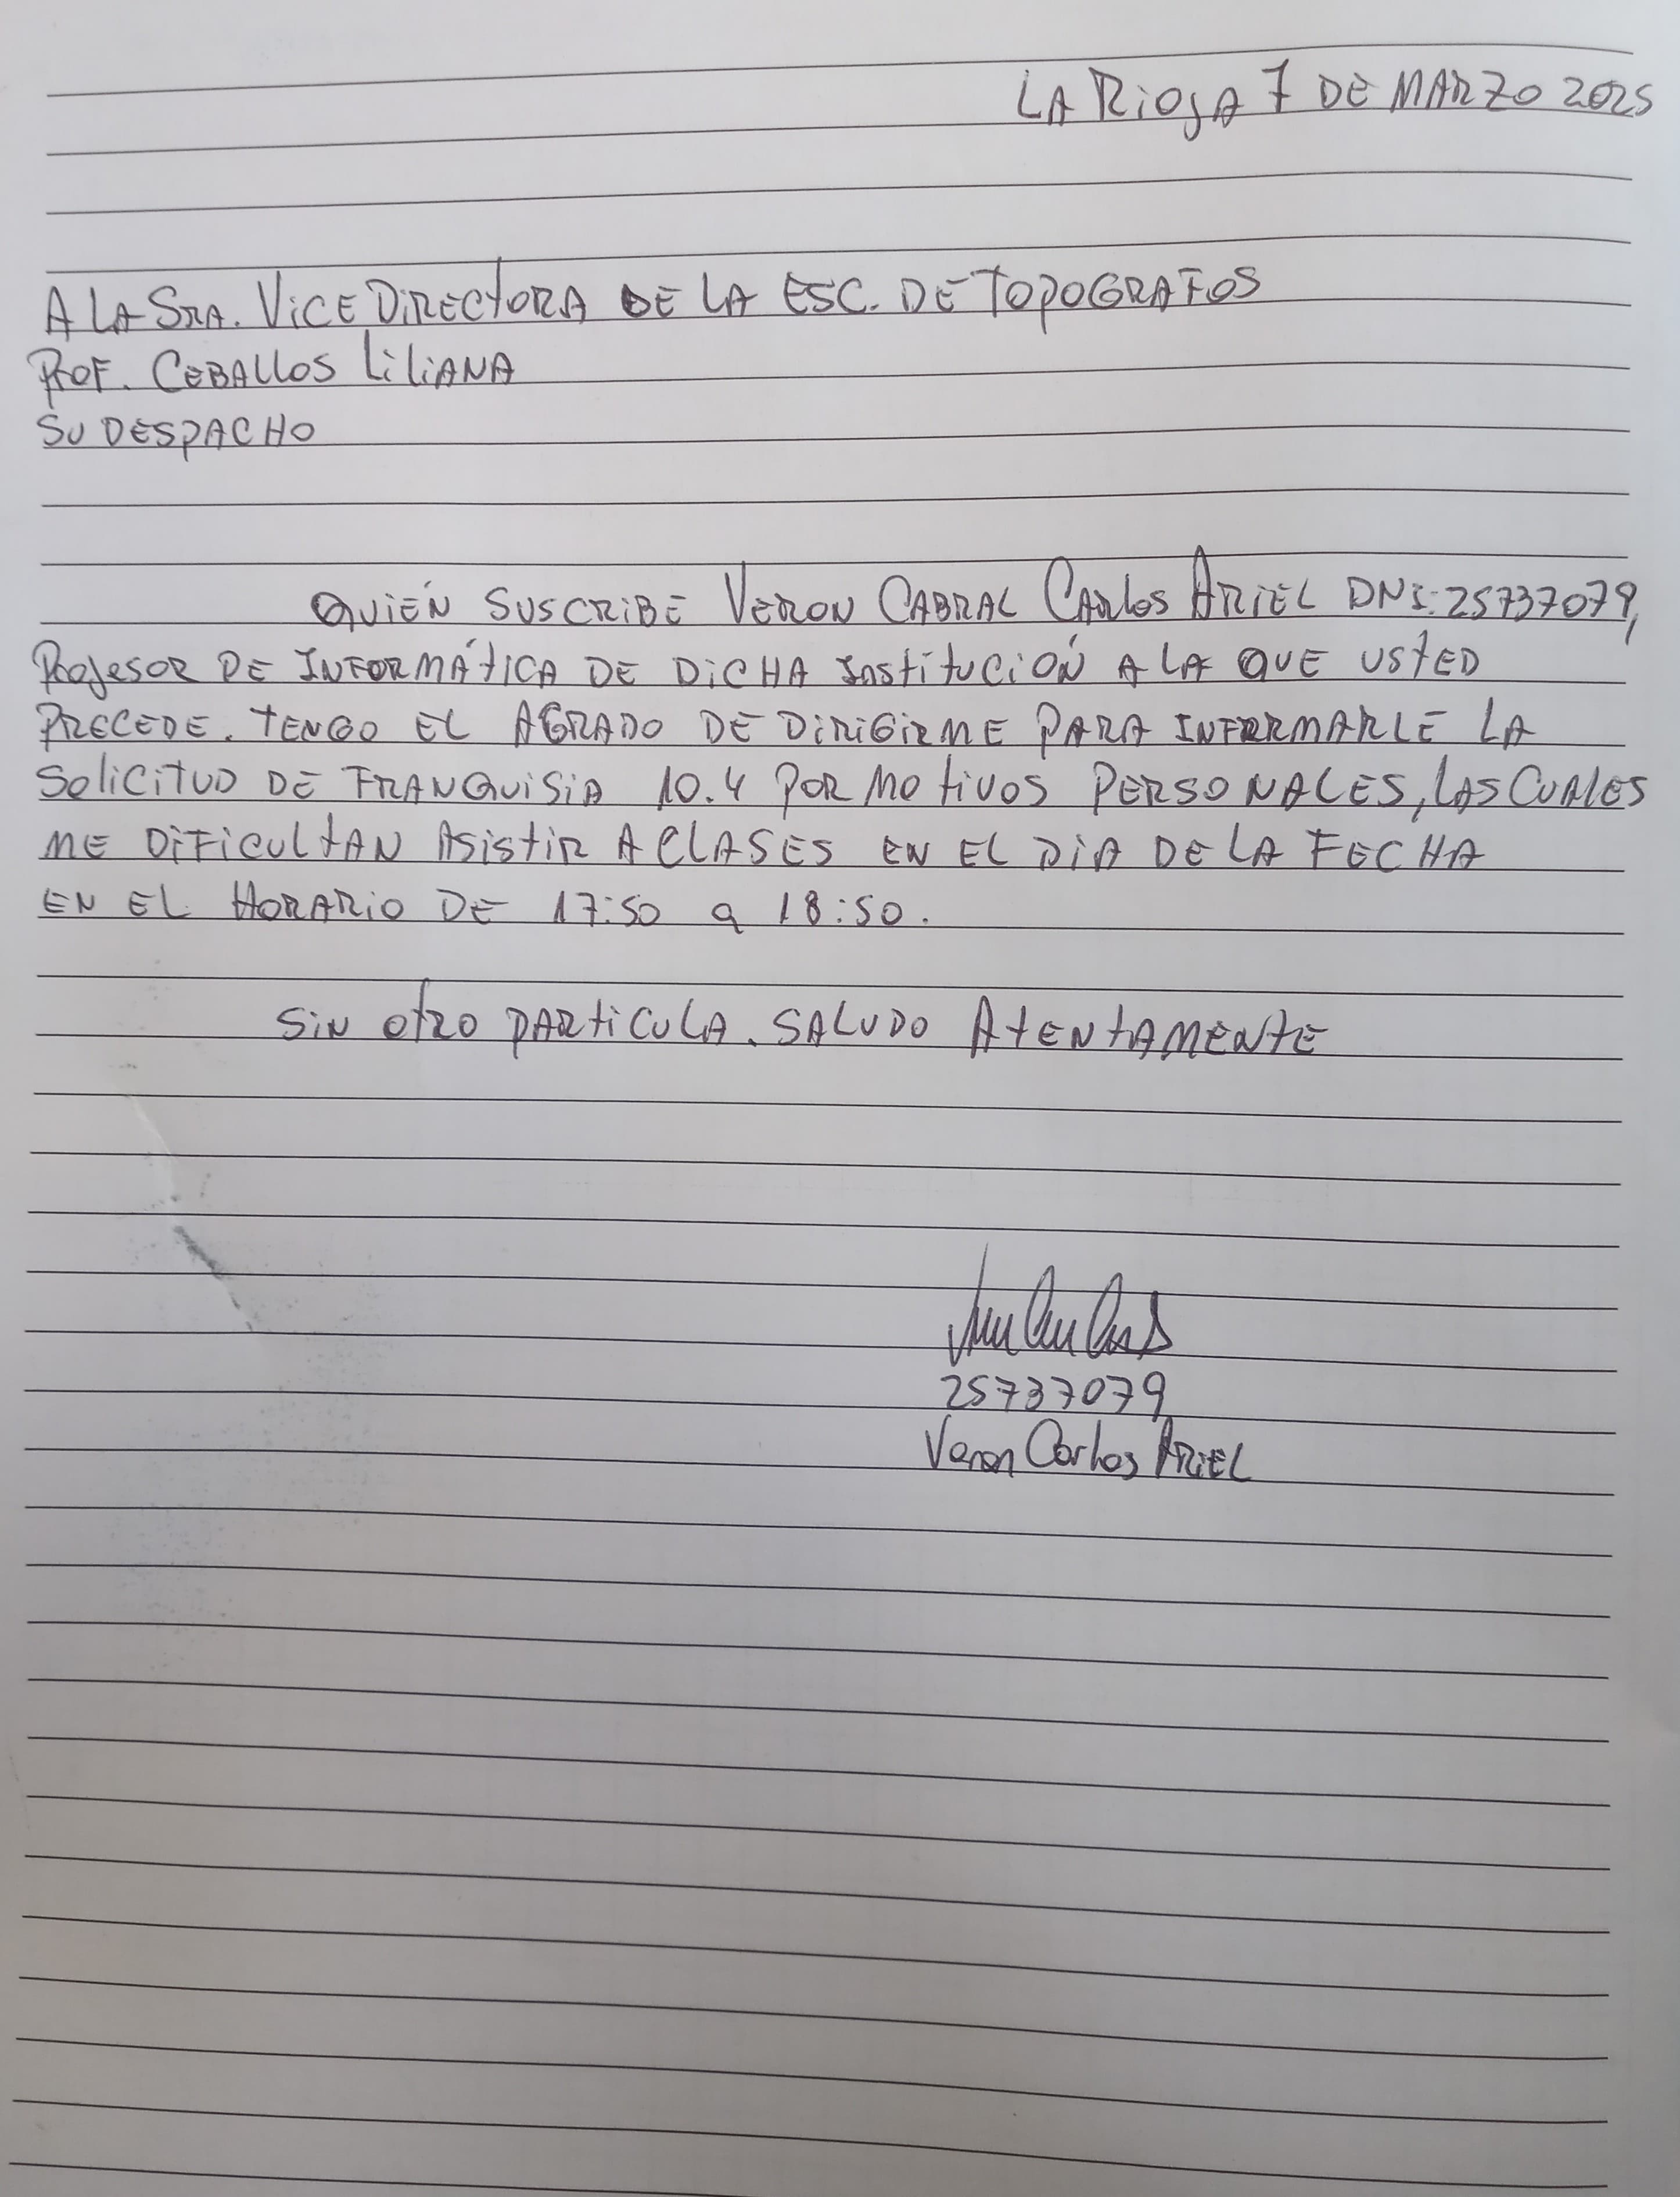 LA Rioja 7 DE MARZO 2025
A LA SRA. VICE DIRECTORA DE LA ESC. DE TOPOGRAFOS
PROF. CEBALLOS LILIANA
SU DESPACHO
QUIÉN SUSCRIBE VERON CABRAL CARLOS ARIEL DNI: 25737079,
PROFESOR DE INFORMÁTICA DE DICHA INSTITUCIÓN A LA QUE USTED
PRECEDE. TENGO EL AGRADO DE DIRIGIRME PARA INFORMARLE LA
SOLICITUD DE FRANQUISIA 10.4 POR MOTIVOS PERSONALES, LAS CUALES
ME DIFICULTAN ASISTIR A CLASES EN EL DIA DE LA FECHA
EN EL HORARIO DE 17:50 a 18:50.
SIN OTRO PARTICULA. SALUDO ATENTAMENTE
25737079
Veron Carlos ARIEL